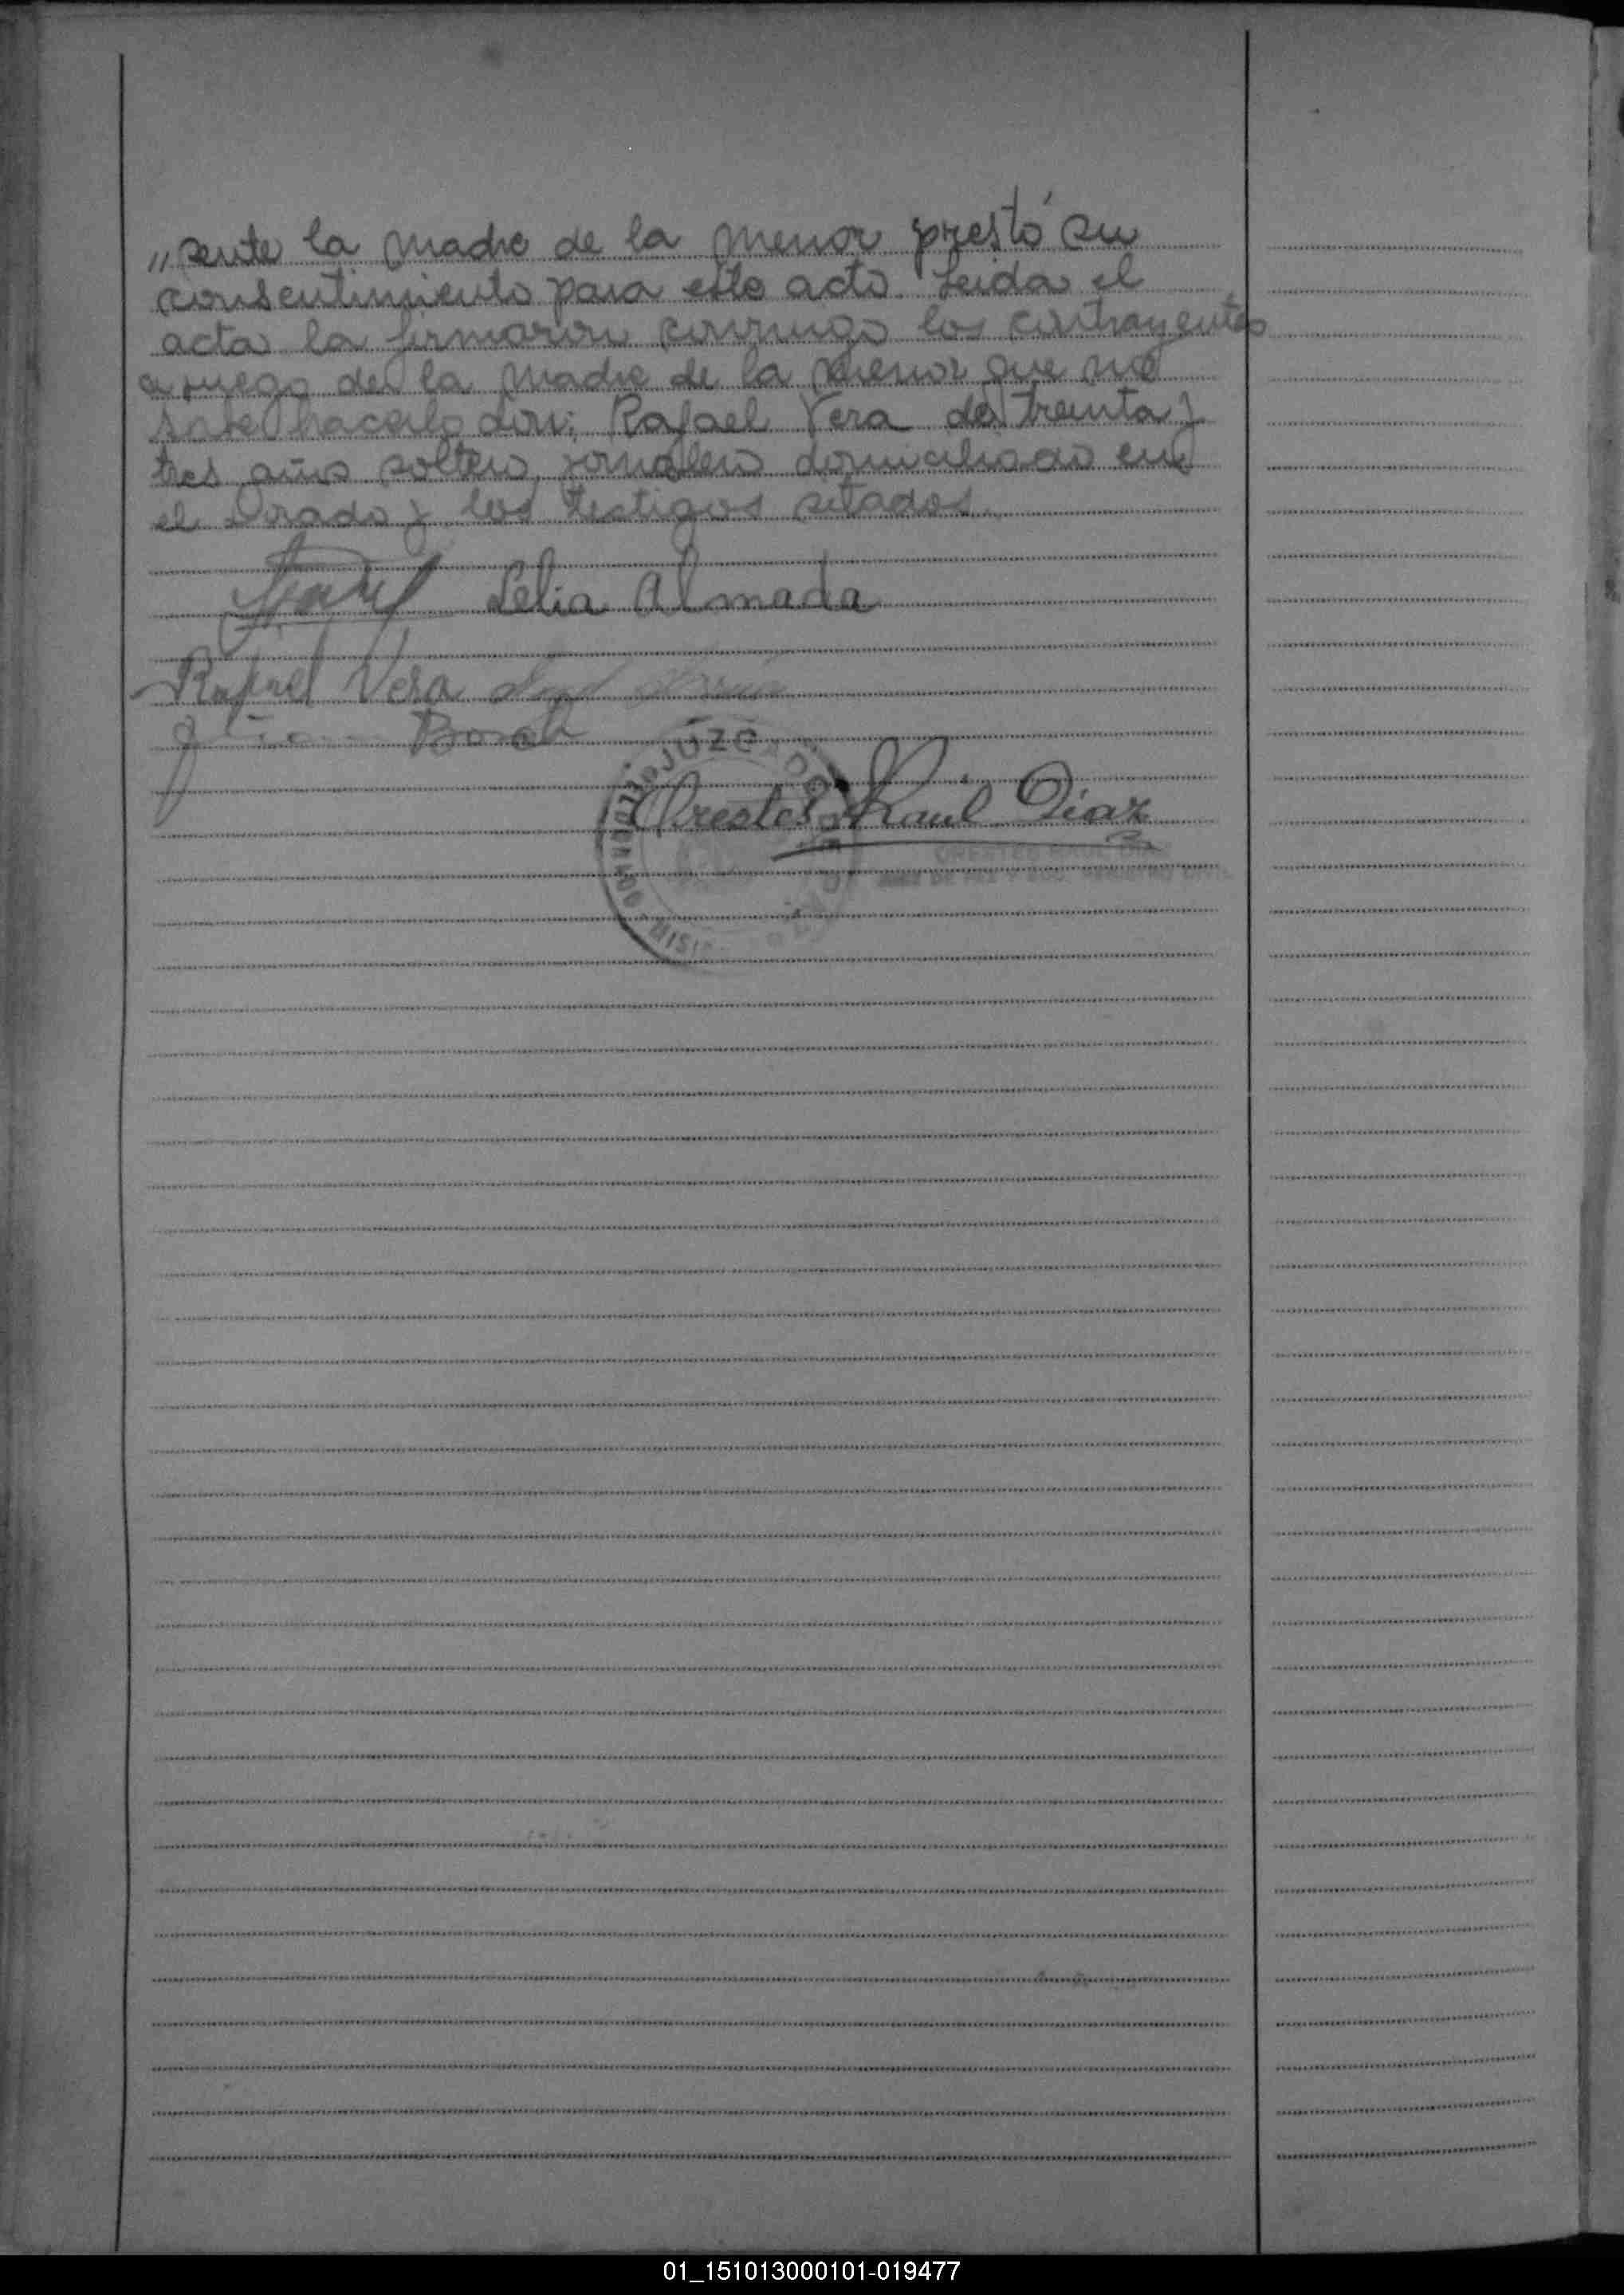 „ sente la madre de la menor prestó su
consentimiento para este acto. Leida el
acta la firmaron conmigo los contrayentes
a ruego de la madre de la menor que no
sabe hacerlo don: Rafael Vera de treinta y
tres años soltero, jornalero domiciliado en
el Dorado y los testigos sitados.
Lelia Almada
Rafael Vera
Bosch
JUZG
Orestes Raul Diaz
ORESTES RAUL DIAZ
JUEZ DE PAZ Y ENC. REGISTRO CIVIL
MISIO
01_151013000101-019477